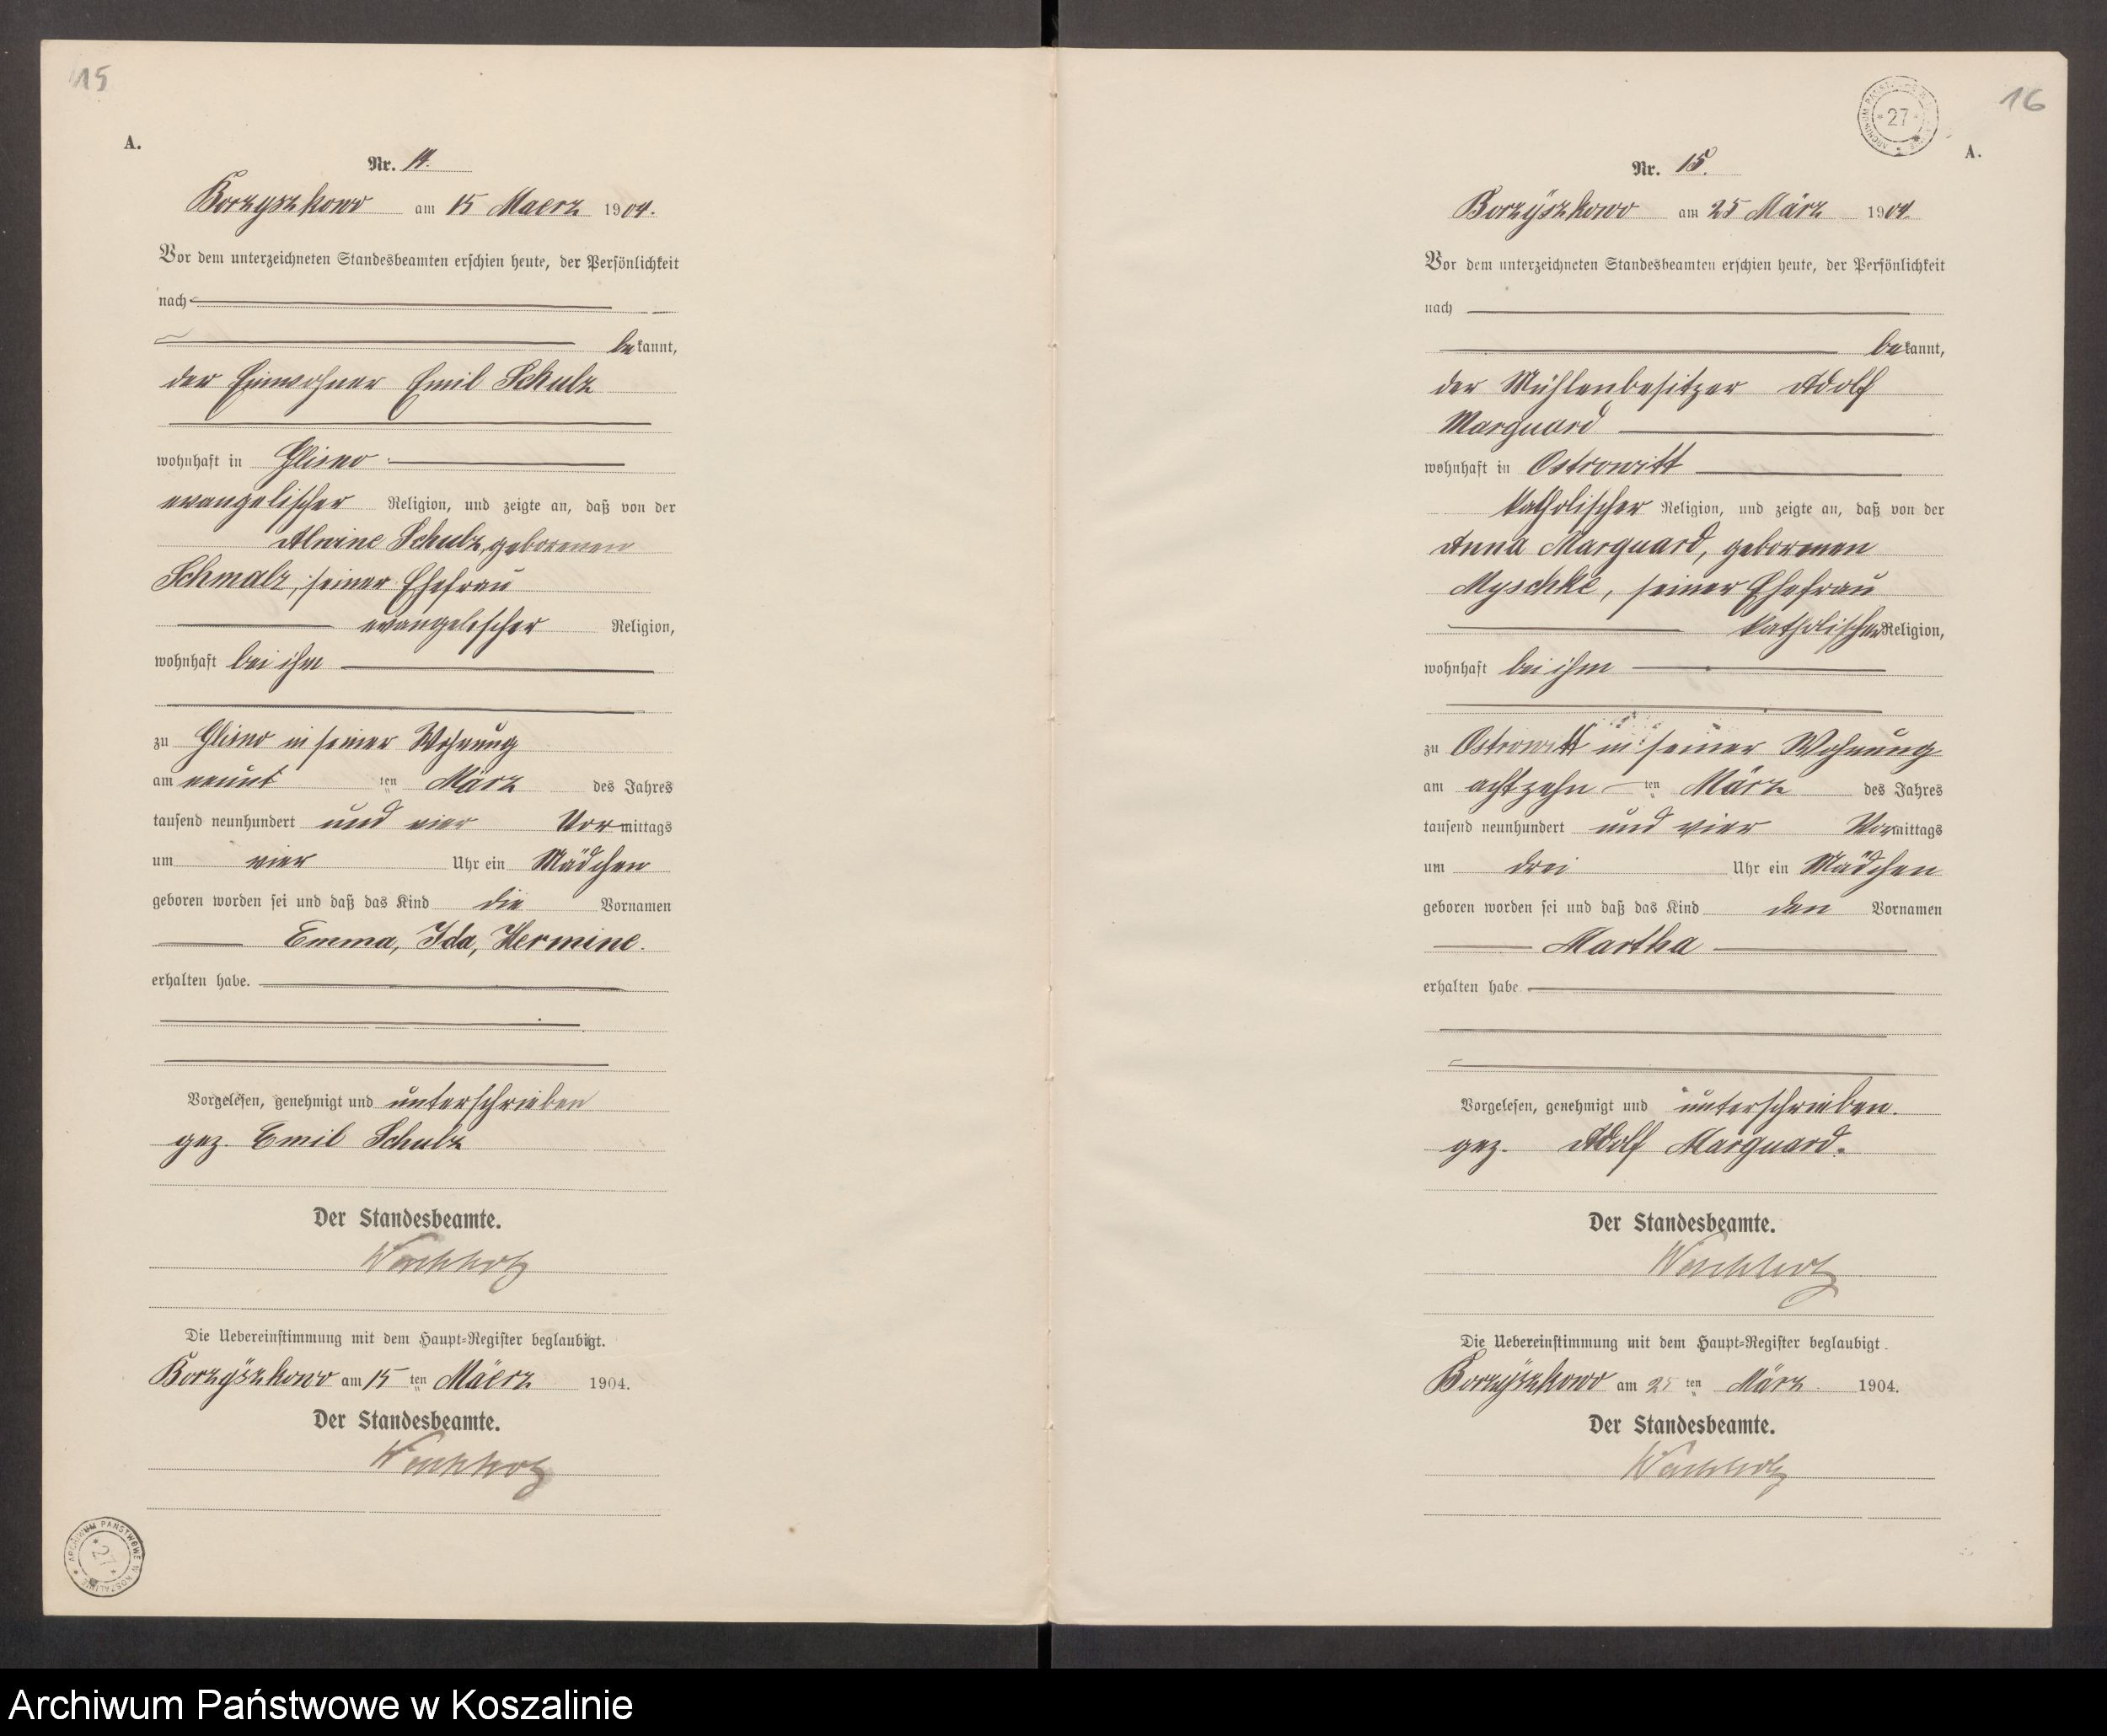 15
A.
Nr. 14.
Borzyszkowo am 15 Maerz 1904.
Vor dem unterzeichneten Standesbeamten erschien heute, der Persönlichkeit
nach
bekannt,
der Einwohner Emil Schulz
wohnhaft in Glisno
evangelischer Religion, und zeigte an, daß von der
Alwine Schulz, geborenen
Schmalz, seiner Ehefrau
evangelischer Religion,
wohnhaft bei ihm
zu Glisno in seiner Wohnung
am neunt ten März des Jahres
tausend neunhundert und vier Vormittags
um vier Uhr ein Mädchen
geboren worden sei und daß das Kind die Vornamen
Emma, Ida, Hermine.
erhalten habe.
Vorgelesen, genehmigt und unterschrieben
gez. Emil Schulz
Der Standesbeamte.
Die Uebereinstimmung mit dem Haupt-Register beglaubigt.
Borzyszkowo am 15 ten Mäerz 1904.
Der Standesbeamte.
ARCHIWUM PAŃSTWOWE W KOSZALINIE
27
16
27
A.
Nr. 15.
Borzyszkowo am 25 März 1904.
Vor dem unterzeichneten Standesbeamten erschien heute, der Persönlichkeit
nach
bekannt,
der Mühlenbesitzer Adolf
Marquard
wohnhaft in Ostrowitt
katholischer Religion, und zeigte an, daß von der
Anna Marquard, geborenen
Myschke, seiner Ehefrau
katholischer Religion,
wohnhaft bei ihm
zu Ostrowitt in seiner Wohnung
am achtzehn ten März des Jahres
tausend neunhundert und vier Vormittags
um drei Uhr ein Mädchen
geboren worden sei und daß das Kind den Vornamen
Martha
erhalten habe.
Vorgelesen, genehmigt und unterschrieben.
gez. Adolf Marquard.
Der Standesbeamte.
Die Uebereinstimmung mit dem Haupt-Register beglaubigt.
Borzyszkowo am 25 ten März 1904.
Der Standesbeamte.
Archiwum Państwowe w Koszalinie